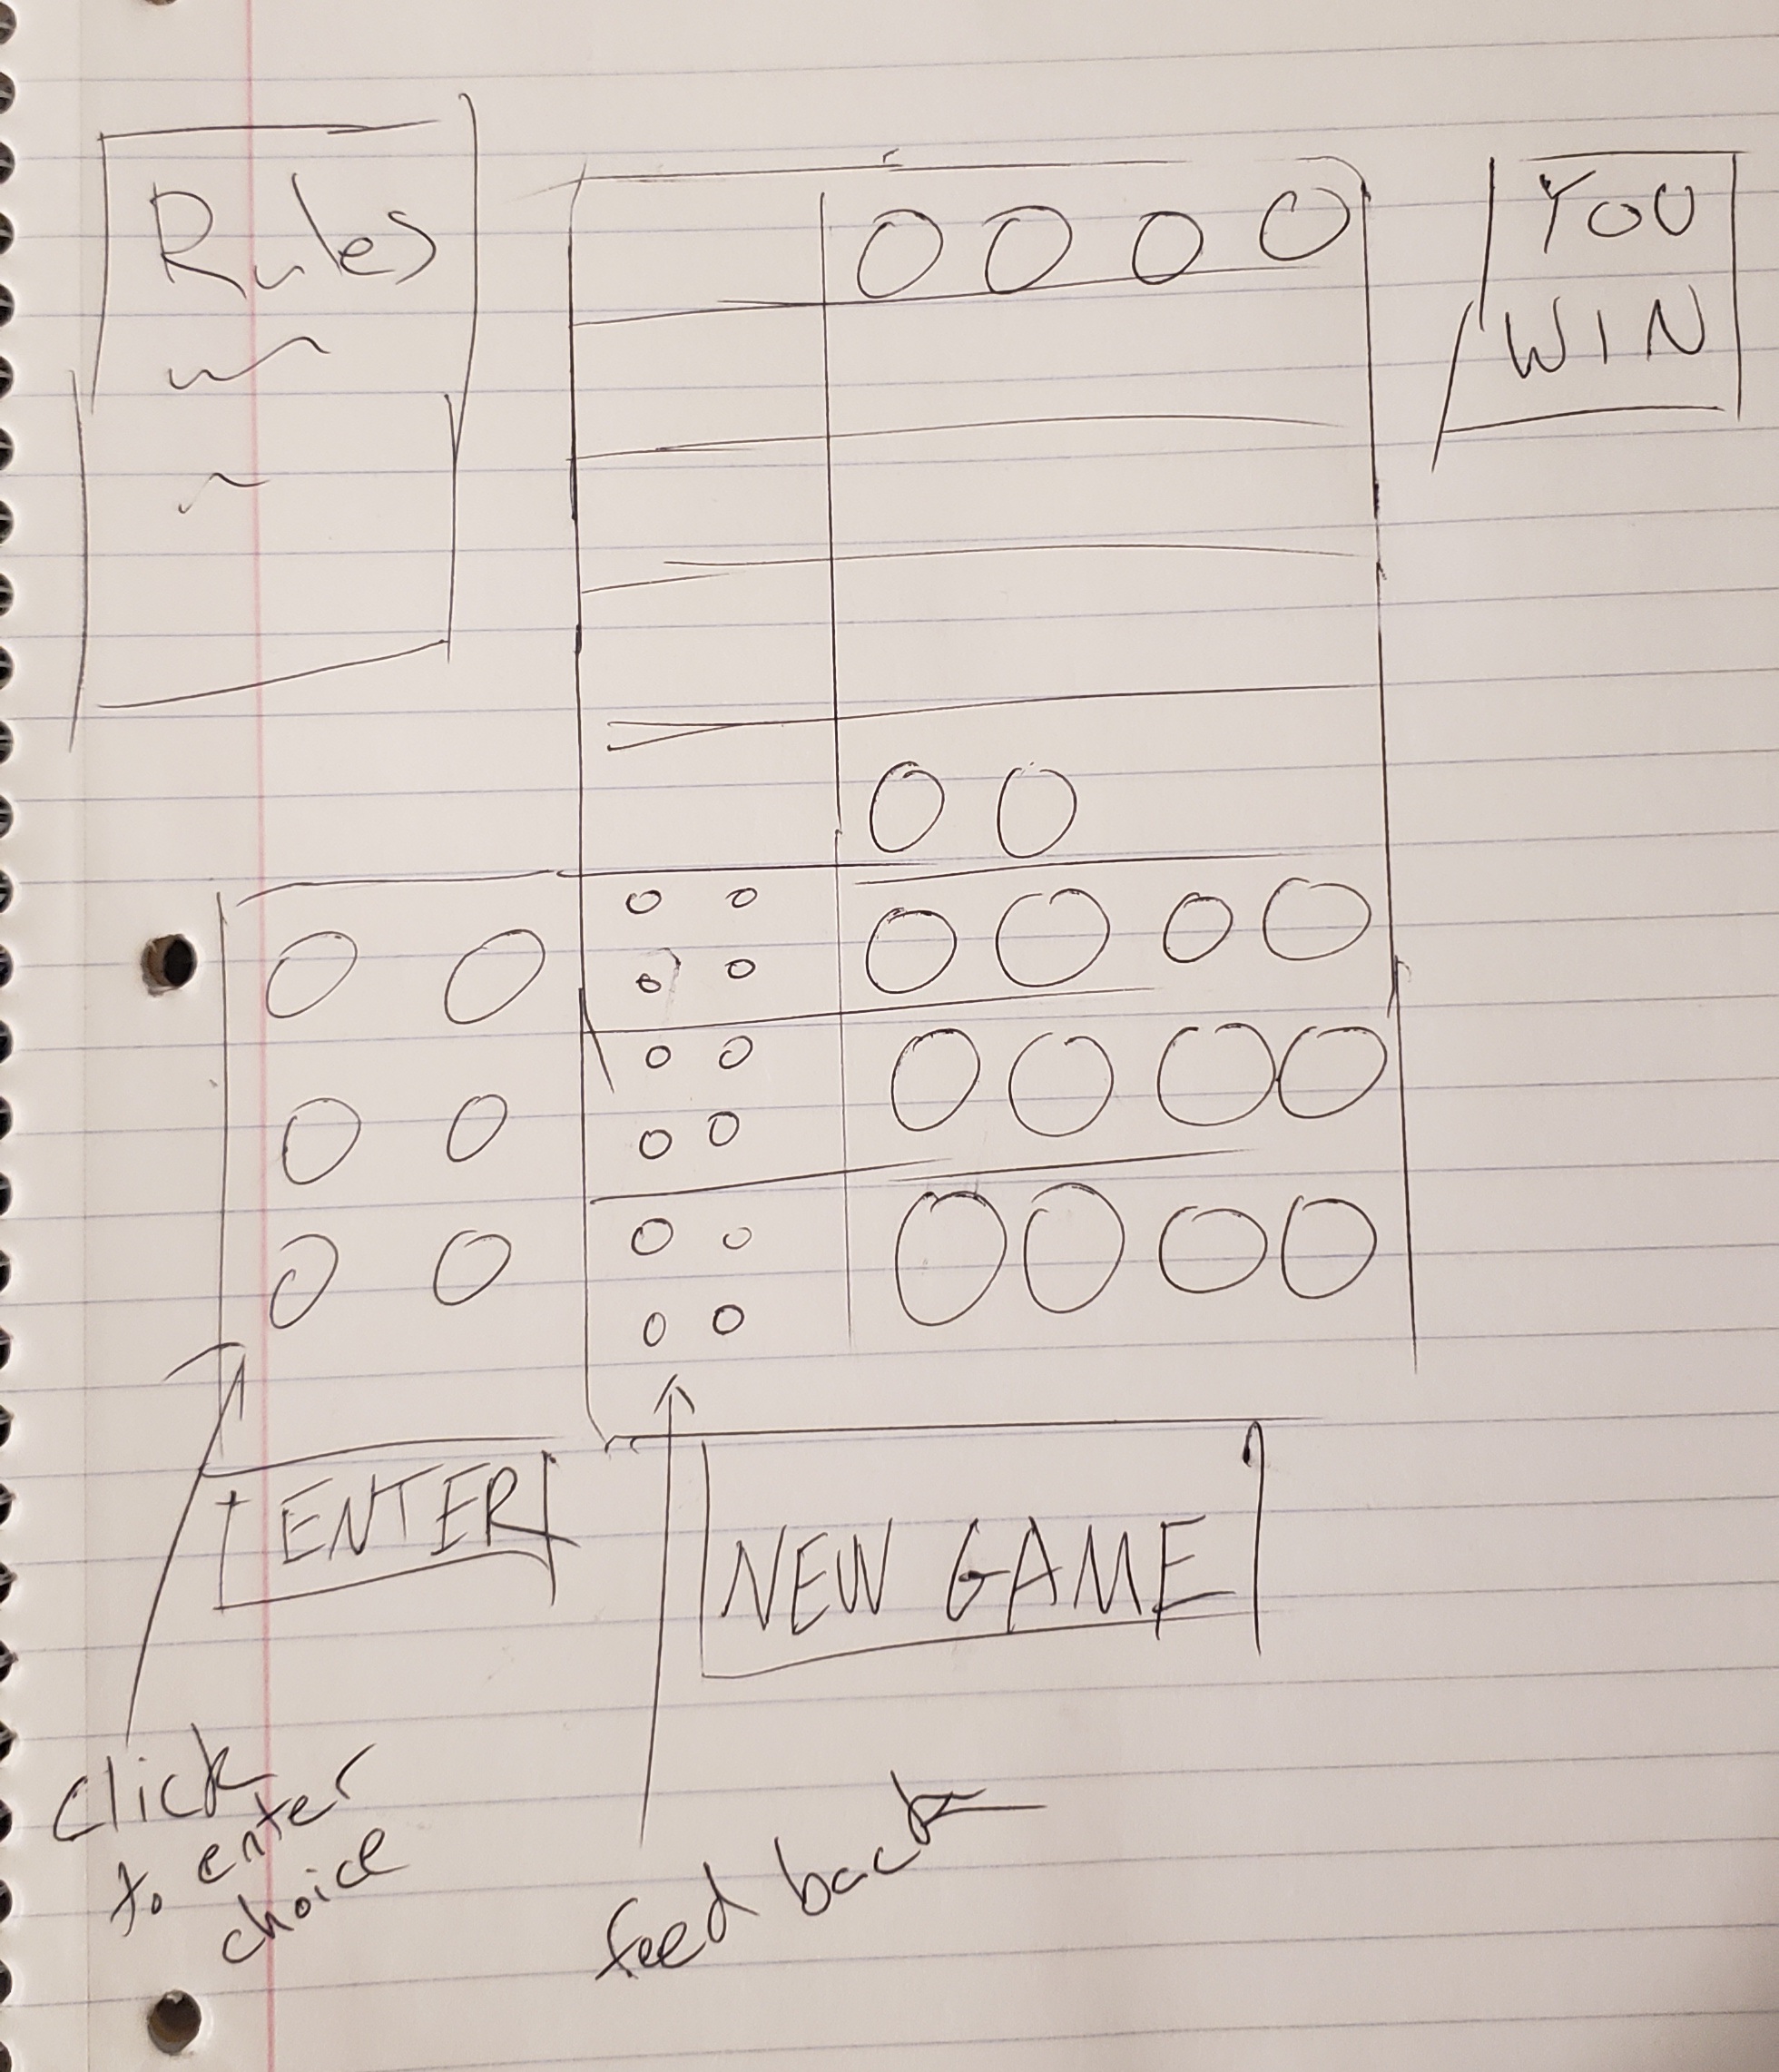 Rules
YOU
WIN
ENTER
NEW GAME
click
to enter
choice
feed back